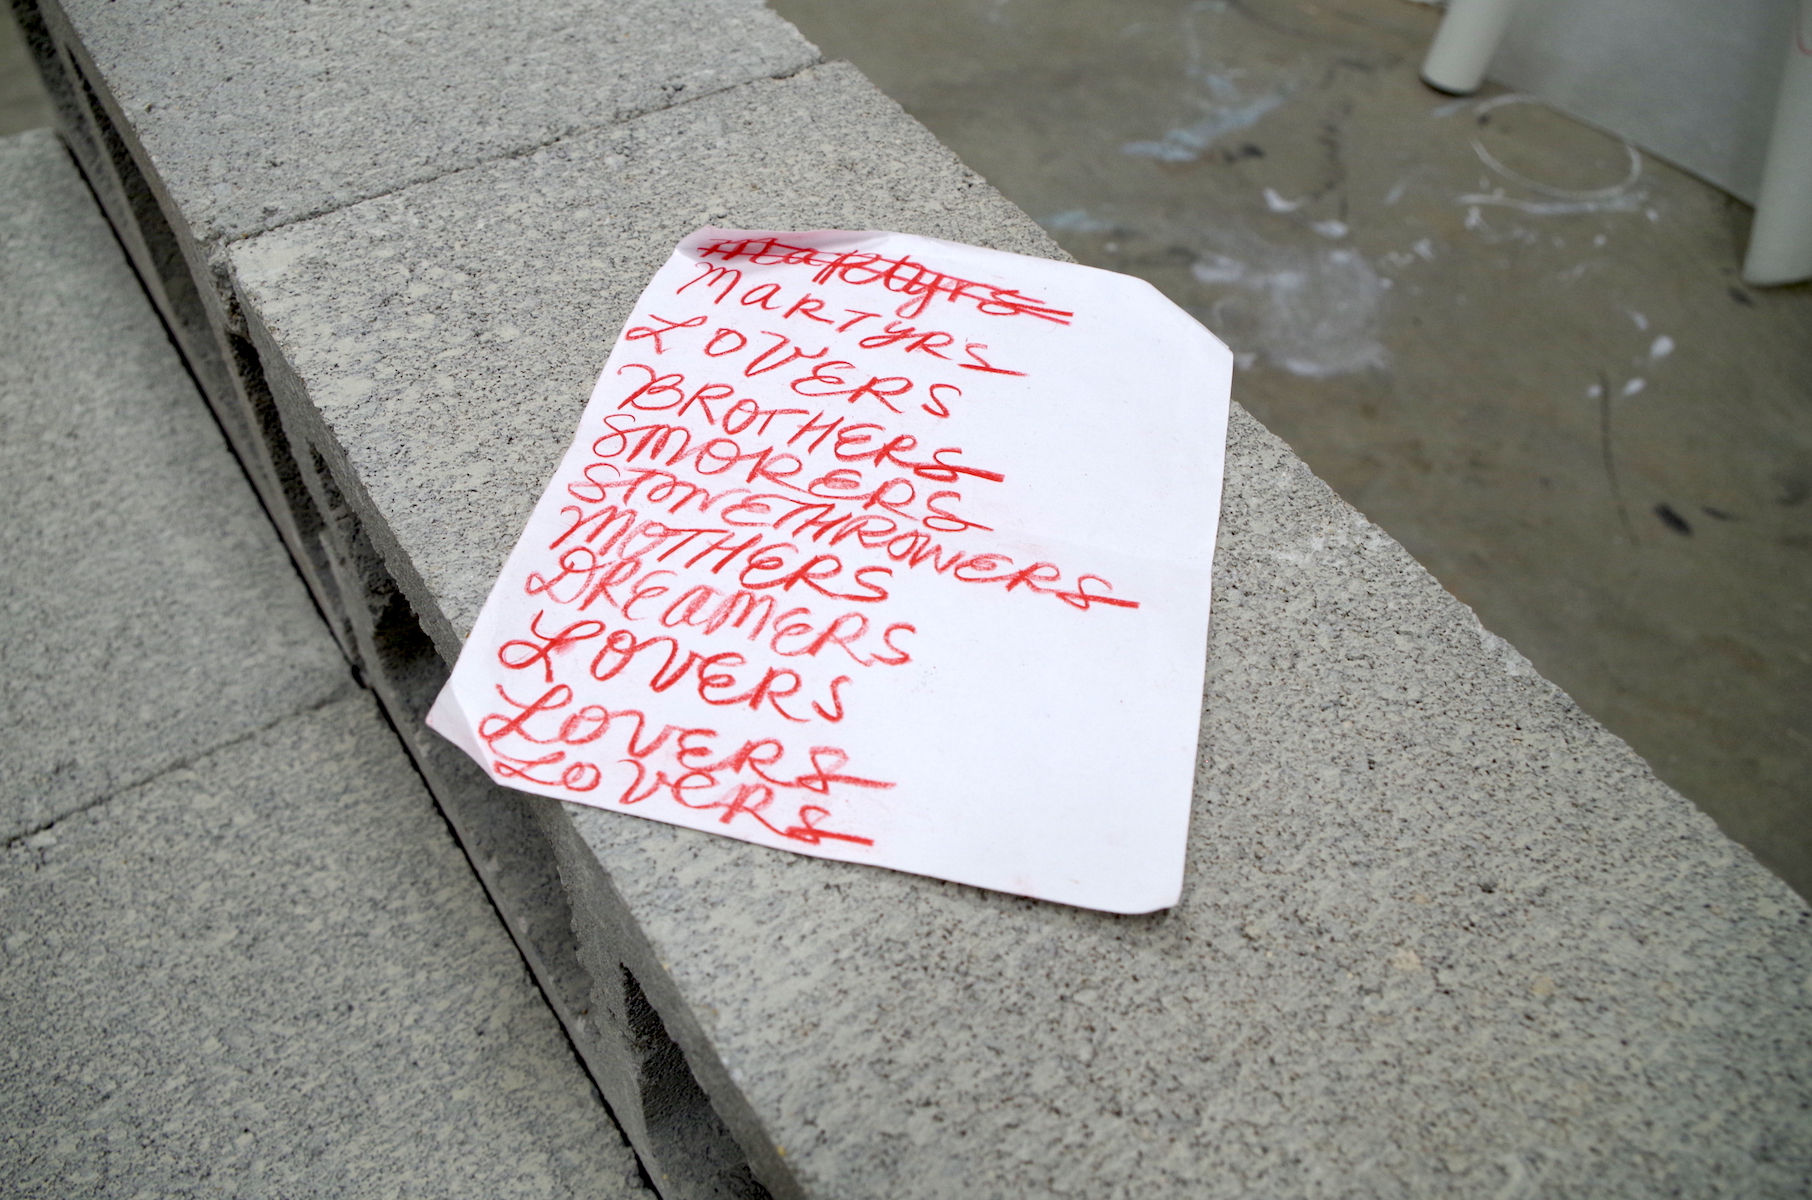 Martyrs
MaRTYRS
LOVERS
BROTHERS
SMOKERS
STONETHROWERS
MOTHERS
DREAMERS
LOVERS
LOVERS
LOVERS